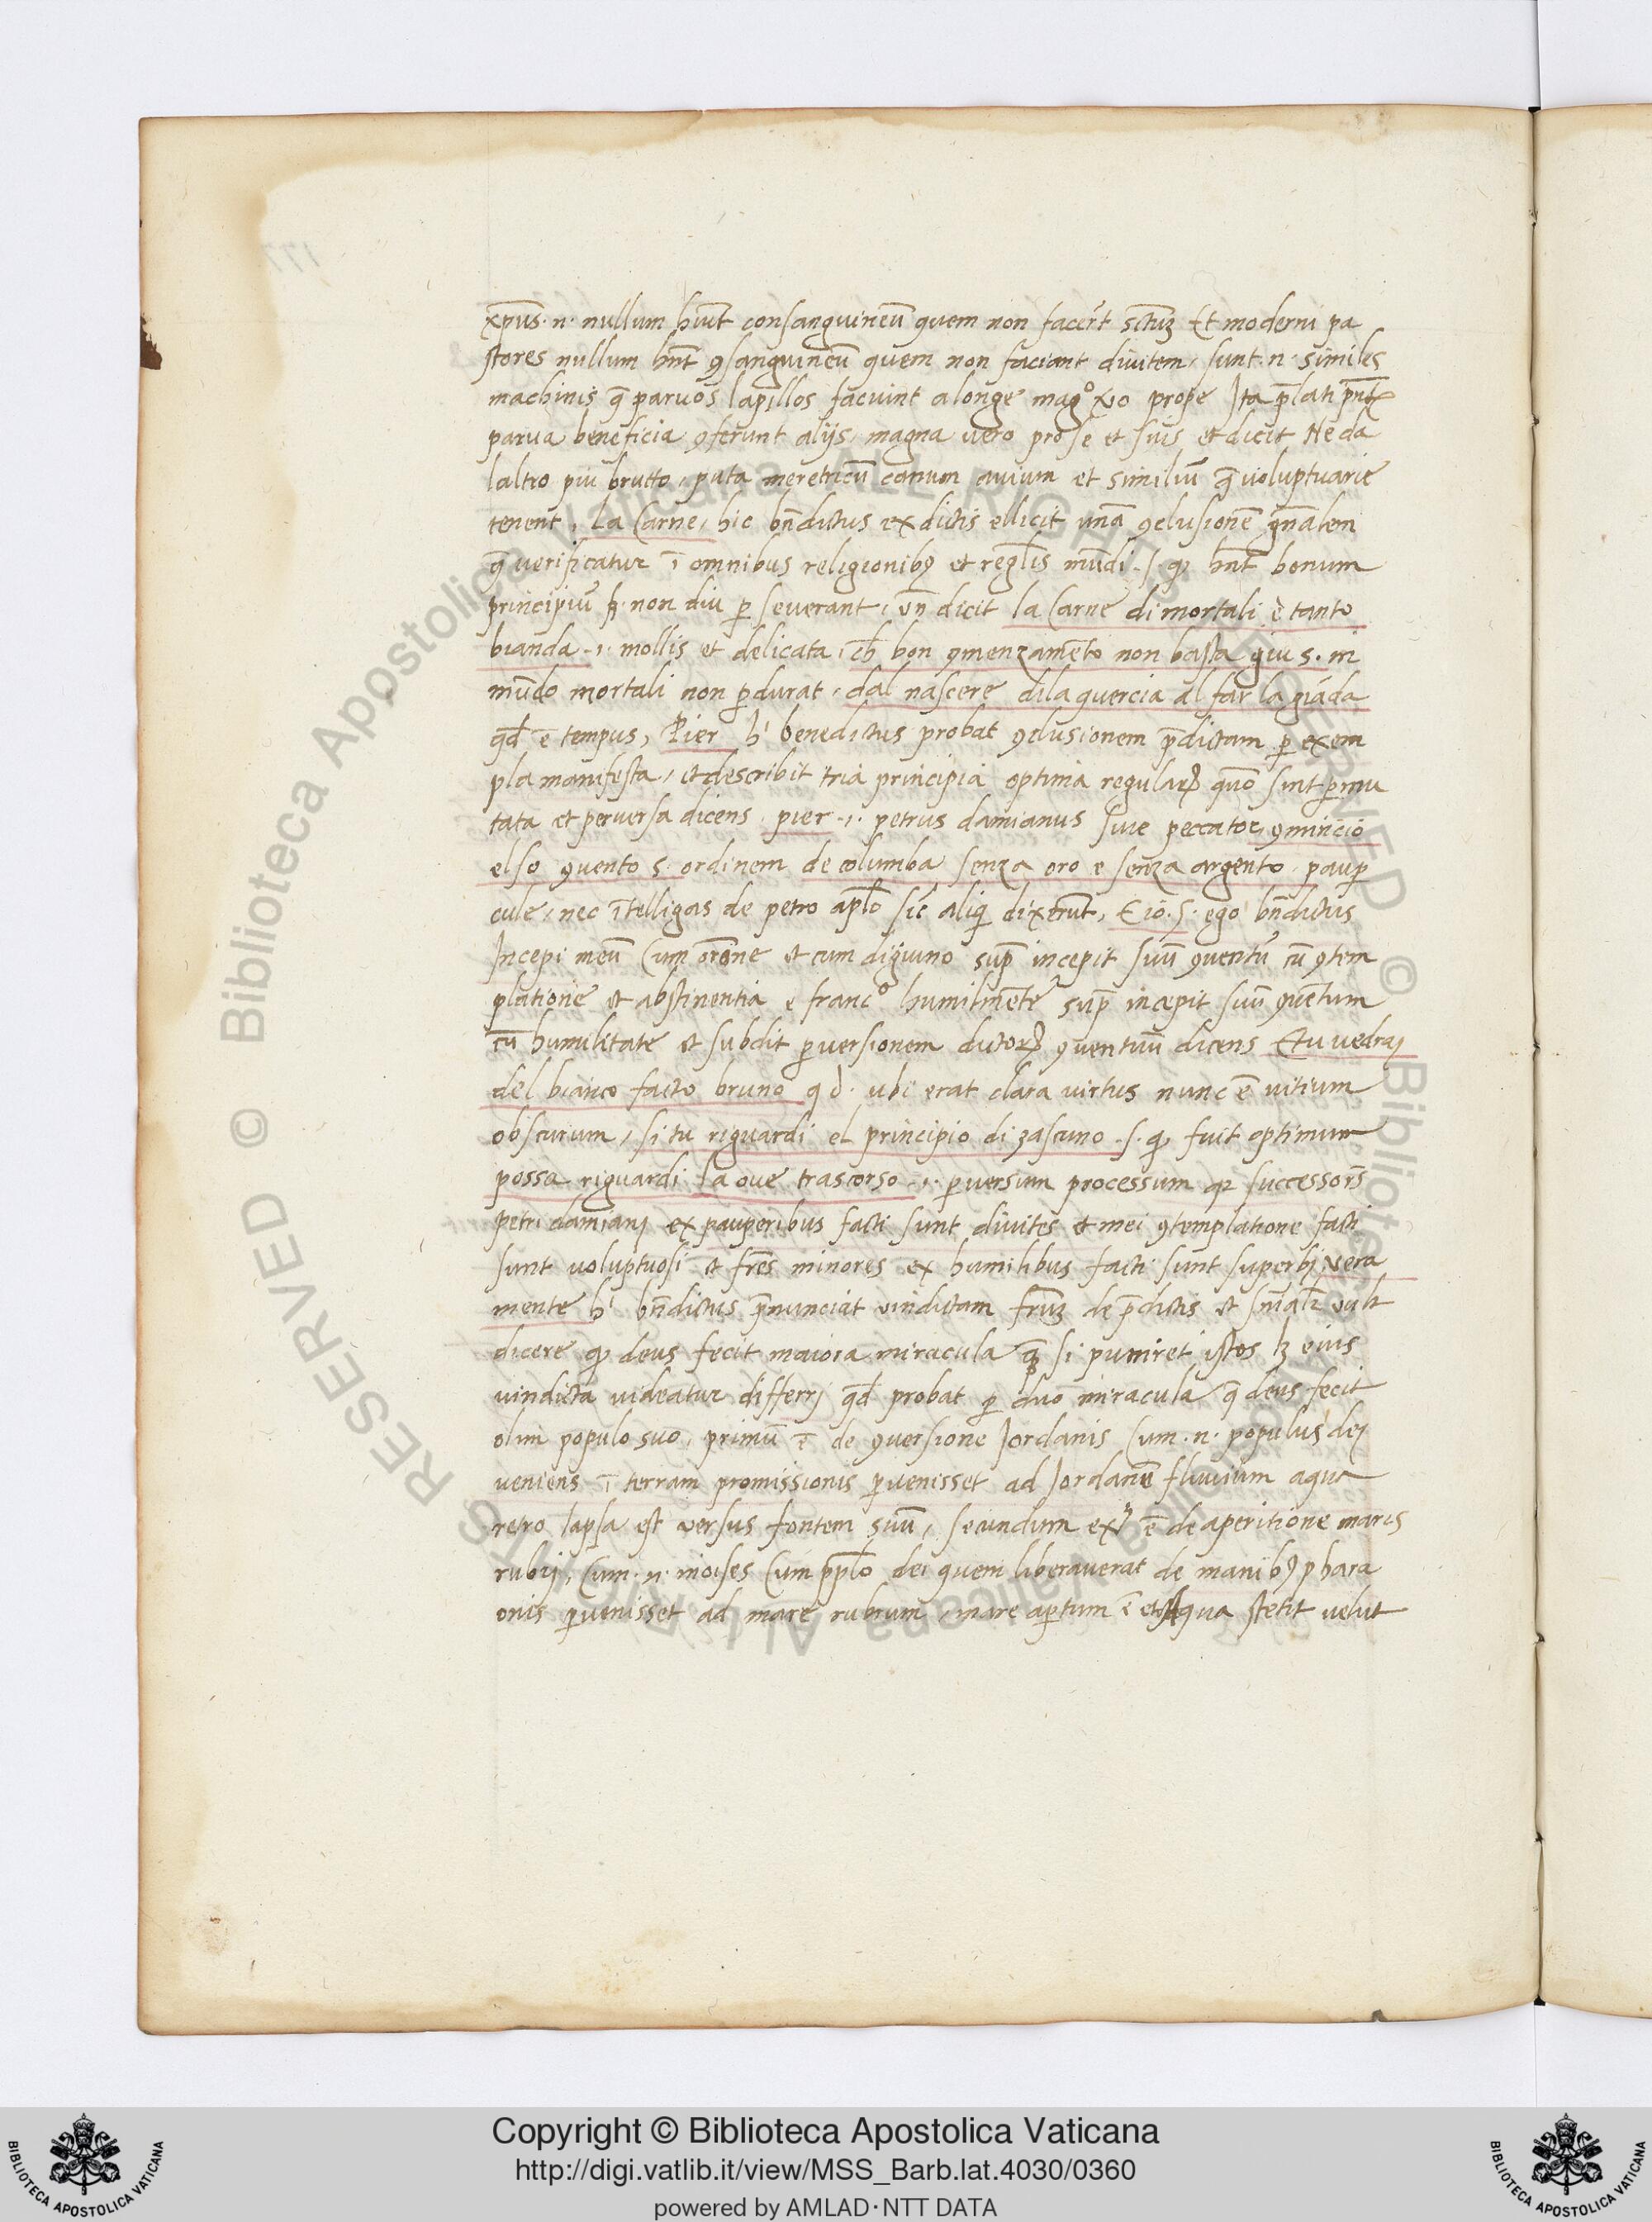 xp̄us · n · nullum huit̄ consanguineū quem non facer̄t sctūȝ Et moderni pa
stores nullum hn̄t ꝯsanguineū quem non faciant divitem, sunt · n · similes
machinis q̄ paruos lapillos iaciunt a longe mag.º ꝟo prope Ita p̄lati
parua beneficia ꝯferunt alijs, magna uero pro se et suis et dicit Ne da
laltro piu brutto, puta meretricū canum avium et similiū q̄ uoluptuarie
tenent, La Carne, hic bn̄dictus ex dictis ellicit unā ꝯclusionē gn̄alem
q̄ uerificatur ī omnibus religionibꝫ et regl̄is mūdi .s. ꝙ hn̄t bonum
principiū ſꝫ non diu ꝑseuerant, un̄ dicit la Carne di mortali è tanto
bianda .i. mollis et delicata, ch̄ bon ꝯmenzamēto non basta giu s. in
mūdo mortali non ꝑdurat, dal nascere dila quercia al far la giāda
qd̄ ē tempus, Pier hⁱ benedictus probat ꝯclusionem p̄dictam ꝑ exem
pla manifesta, et describit tria principia optima regulaꝝ quō sint ꝑmu
tata et peruersa dicens pier .i. petrus damianus siue peccator ꝯmincio
el so ꝯuento s. ordinem de columba senza oro e senza argento, pauꝑ
cule, nec ītelligas de petro apl̄o sic aliq̄ dixerūt, E io .s. ego bn̄dictus
Incepi meū Cum orōne et cum digiuno sup̄ incepit suū ꝯuentū cū ꝯtem
platione et abstinentia e franc.º humilmēte sup̄ incepit suū ꝯuētum
cū humilitate et subdit ꝑuersionem dictoꝝ ꝯuentuū dicens E tu uedraj
del bianco facto bruno q d. ubi erat clara uirtus nunc ē uitium
obscurum, si tu riguardi el principio di zascuno .s. ꝙ fuit optimum
possa riguardi la oue trascorso .i. ꝑuersum processum qꝛ successor̄s
petri damianj ex pauperibus facti sunt diuites et mei ꝯtemplatione facti
sunt uoluptuosi et fr̄es minores ex humilibus facti sunt superbj uera
mente hⁱ bn̄dictus p̄nunciat uindictam fr̄uȝ de p̄dictis et sn̄ialr̄ uult
dicere ꝙ deus fecit maiora miracula q̄ȝ si puniret istos lꝫ eius
uindicta uideatur differrj qd̄ probat ꝑ duo miracula q̄ deus fecit
olim populo suo, primū ē de ꝯuersione Jordanis Cum · n · populus dej
ueniens ī terram promissionis ꝑuenisset ad Jordanē fluuium aqua
retro lapsa est uersus fontem suū, secundum ē de aperitione maris
rubrj, Cum · n · moises Cum ppl̄o dei quem liberauerat de manibꝫ phara
onis ꝑuenisset ad mare rubrum, mare aꝑtum ē et aqua stetit uelut
Copyright © Biblioteca Apostolica Vaticana
http://digi.vatlib.it/view/MSS_Barb.lat.4030/0360
powered by AMLAD · NTT DATA
BIBLIOTECA APOSTOLICA VATICANA
BIBLIOTECA APOSTOLICA VATICANA